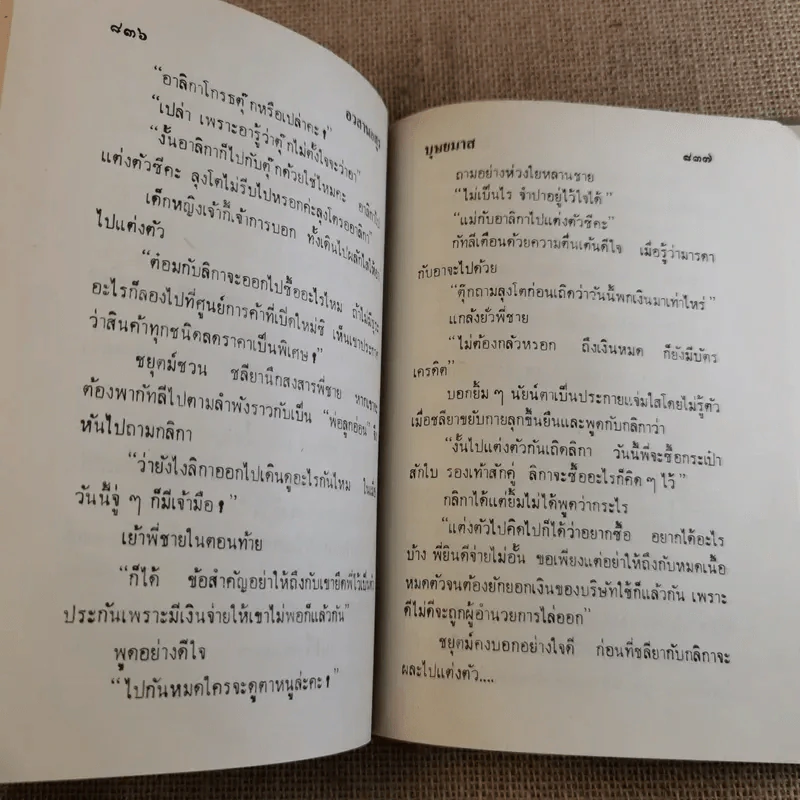 ๘๓๖
“อาลิกาโกรธตุ๊กหรือเปล่าคะ?”
“เปล่า เพราะอารู้ว่าตุ๊กไม่ตั้งใจจะว่าอา”
“งั้นอาลิกาก็ไปกับตุ๊กด้วยใช่ไหมคะ อาลิกาไป
แต่งตัวซีคะ ลุงโตไม่รีบไปหรอกค่ะลุงโตรออาลิกา”
เด็กหญิงเจ้ากี้เจ้าการบอก ทั้งเดินไป
ไปแต่งตัว
“ต๋อมกับลิกาจะออกไปซื้ออะไรไหม ถ้าไม่
อะไรก็ลองไปที่ศูนย์การค้าที่เปิดใหม่ซิ เห็นเขา
ว่าสินค้าทุกชนิดลดราคาเป็นพิเศษ?”
ชยุตม์ชวน ชลียานึกสงสารพี่ชาย หาก
ต้องพากัทลีไปตามลำพังราวกับเป็น “พ่อลูกอ่อน”
หันไปถามกลิกา
“ว่ายังไงลิกาออกไปเดินดูอะไรกันไหม
วันนี้จู่ ๆ ก็มีเจ้ามือ?”
เย้าพี่ชายในตอนท้าย
“ก็ได้ ข้อสำคัญอย่าให้ถึงกับเขายึดพี่ไว้เป็น
ประกันเพราะมีเงินจ่ายให้เขาไม่พอก็แล้วกัน”
พูดอย่างดีใจ
“ไปกันหมดใครจะดูตาหนูล่ะคะ?”
บุษยมาส
๘๓๗
ถามอย่างห่วงใยหลานชาย
“ไม่เป็นไร จำปาอยู่ไว้ใจได้”
“แม่กับอาลิกาไปแต่งตัวซีคะ”
กัทลีเตือนด้วยความตื่นเต้นดีใจ เมื่อรู้ว่ามารดา
กับอาจะไปด้วย
“ตุ๊กถามลุงโตก่อนเถิดว่าวันนี้พกเงินมาเท่าไหร่”
แกล้งยั่วพี่ชาย
“ไม่ต้องกลัวหรอก ถึงเงินหมด ก็ยังมีบัตร
เครดิต”
บอกยิ้ม ๆ นัยน์ตาเป็นประกายแจ่มใสโดยไม่รู้ตัว
เมื่อชลียาขยับกายลุกขึ้นยืนและพูดกับกลิกาว่า
“งั้นไปแต่งตัวกันเถิดลิกา วันนี้พี่จะซื้อกระเป๋า
สักใบ รองเท้าสักคู่ ลิกาจะซื้ออะไรก็คิด ๆ ไว้”
กลิกาได้แต่ยิ้มไม่ได้พูดว่ากระไร
“แต่งตัวไปคิดไปก็ได้ว่าอยากซื้อ อยากได้อะไร
บ้าง พี่ยินดีจ่ายไม่อั้น ขอเพียงแต่อย่าให้ถึงกับหมดเนื้อ
หมดตัวจนต้องยักยอกเงินของบริษัทใช้ก็แล้วกัน เพราะ
ดีไม่ดีจะถูกผู้อำนวยการไล่ออก”
ชยุตม์คงบอกอย่างใจดี ก่อนที่ชลียากับกลิกาจะ
ผละไปแต่งตัว....